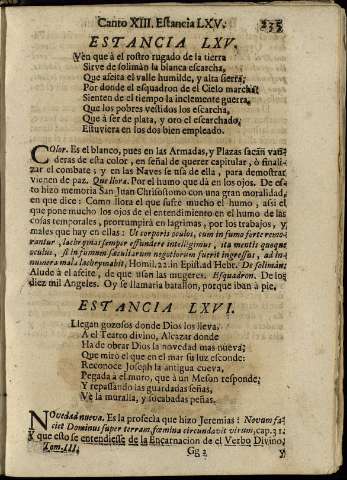 Canto XIII. Estancia LXV. 235
ESTANCIA LXV.
Ven que à el rostro rugado de la tierra
Sirve de solimàn la blanca escarcha,
Que afeita el valle humilde, y alta sierra;
Por donde el esquadron de el Cielo marcha:
Sienten de el tiempo la inclemente guerra,
Que los pobres vestidos los escarcha,
Que à ser de plata, y oro el escarchado,
Estuviera en los dos bien empleado.
COlor. Es el blanco, pues en las Armadas, y Plazas sacan vanderas
de esta color, en señal de querer capitular, ò finalizar
el combate; y en las Naves se usa de ella, para demostrar
vienen de paz. Que llora. Por el humo que dà en los ojos. De esto
hizo memoria San Juan Chrisostomo con una gran moralidad,
en que dice: Como llora el que sufre mucho el humo, assi el
que pone mucho los ojos de el entendimiento en el humo de las
cosas temporales, prorrumpirà en lagrimas, por los trabajos, y
males que hay en ellas: Ut corporis oculus, cum in fumo forte commorantur,
lachrymas semper effundere intelligimus, ita mentis quoque
oculus, si in fumum facultarum negotiorum fuerit ingressus, ad innumera
mala lachrymabit, Homil. 2. in Epist. ad Hebr. De solimàn:
Alude à el afeite, de que usan las mugeres. Esquadron. De los
diez mil Angeles. Oy se llamaria batallon, porque iban à pie.
ESTANCIA LXVI.
Llegan gozosos donde Dios los lleva,
A el Teatro divino, Alcazar donde
Ha de obrar Dios la novedad mas nueva;
Que mirò el que en el mar su luz esconde:
Reconoce Joseph la antigua cueva,
Pegada à el muro, que à un Meson responde;
Y repassando las guardadas señas,
Ve la muralla, y socabadas peñas.
NOvedad nueva. Es la profecia que hizo Jeremias: Novum faciet
Dominus super terram, fœmina circundavit virum, cap. 31.
Y que esto se entendiesse de la Encarnacion de el Verbo Divino,
Tom. III. Gg 2 y